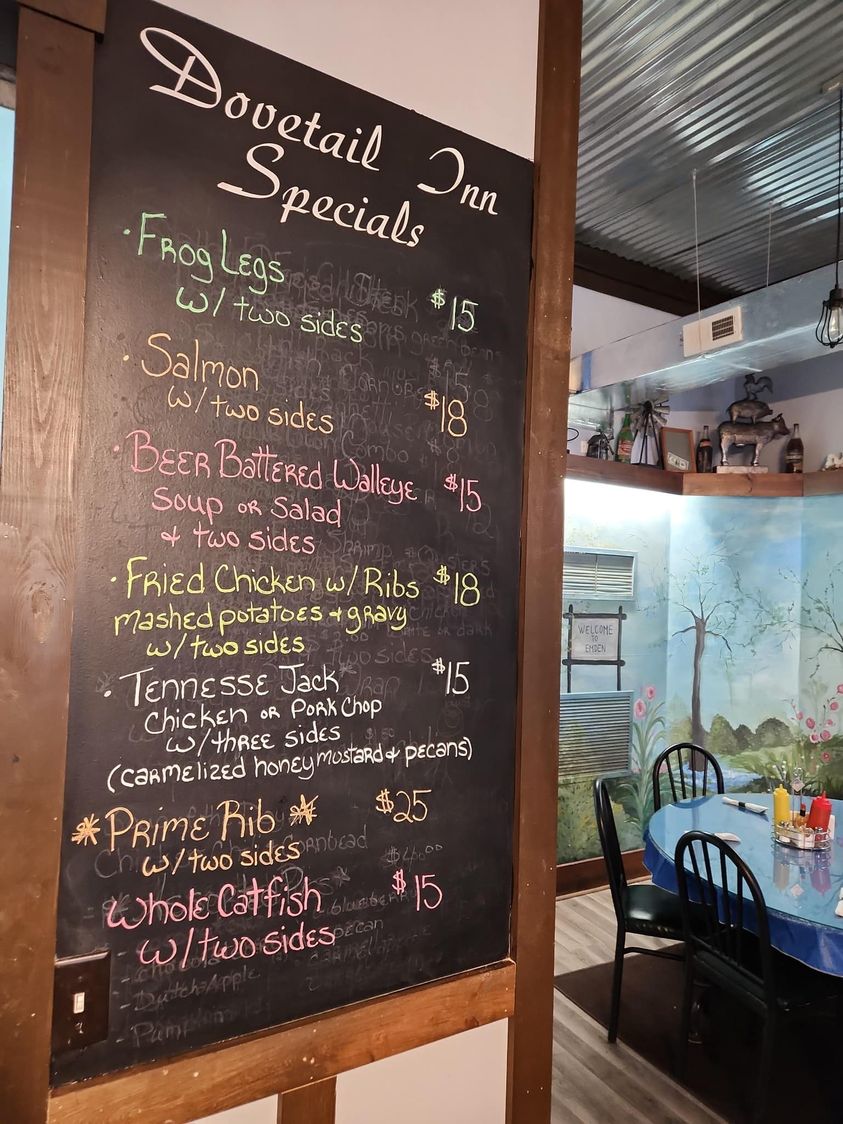 Dovetail Inn
Specials
· Frog Legs
w/ two sides $15
· Salmon
w/ two sides $18
· Beer Battered Walleye $15
Soup or Salad
+ two sides
· Fried Chicken w/ Ribs $18
mashed potatoes + gravy
w/ two sides
· Tennesse Jack $15
Chicken or Pork Chop
w/ three sides
(carmelized honey mustard & pecans)
* Prime Rib * $25
w/ two sides
Whole Catfish $15
w/ two sides
Dutch Apple
WELCOME
TO
EMDEN